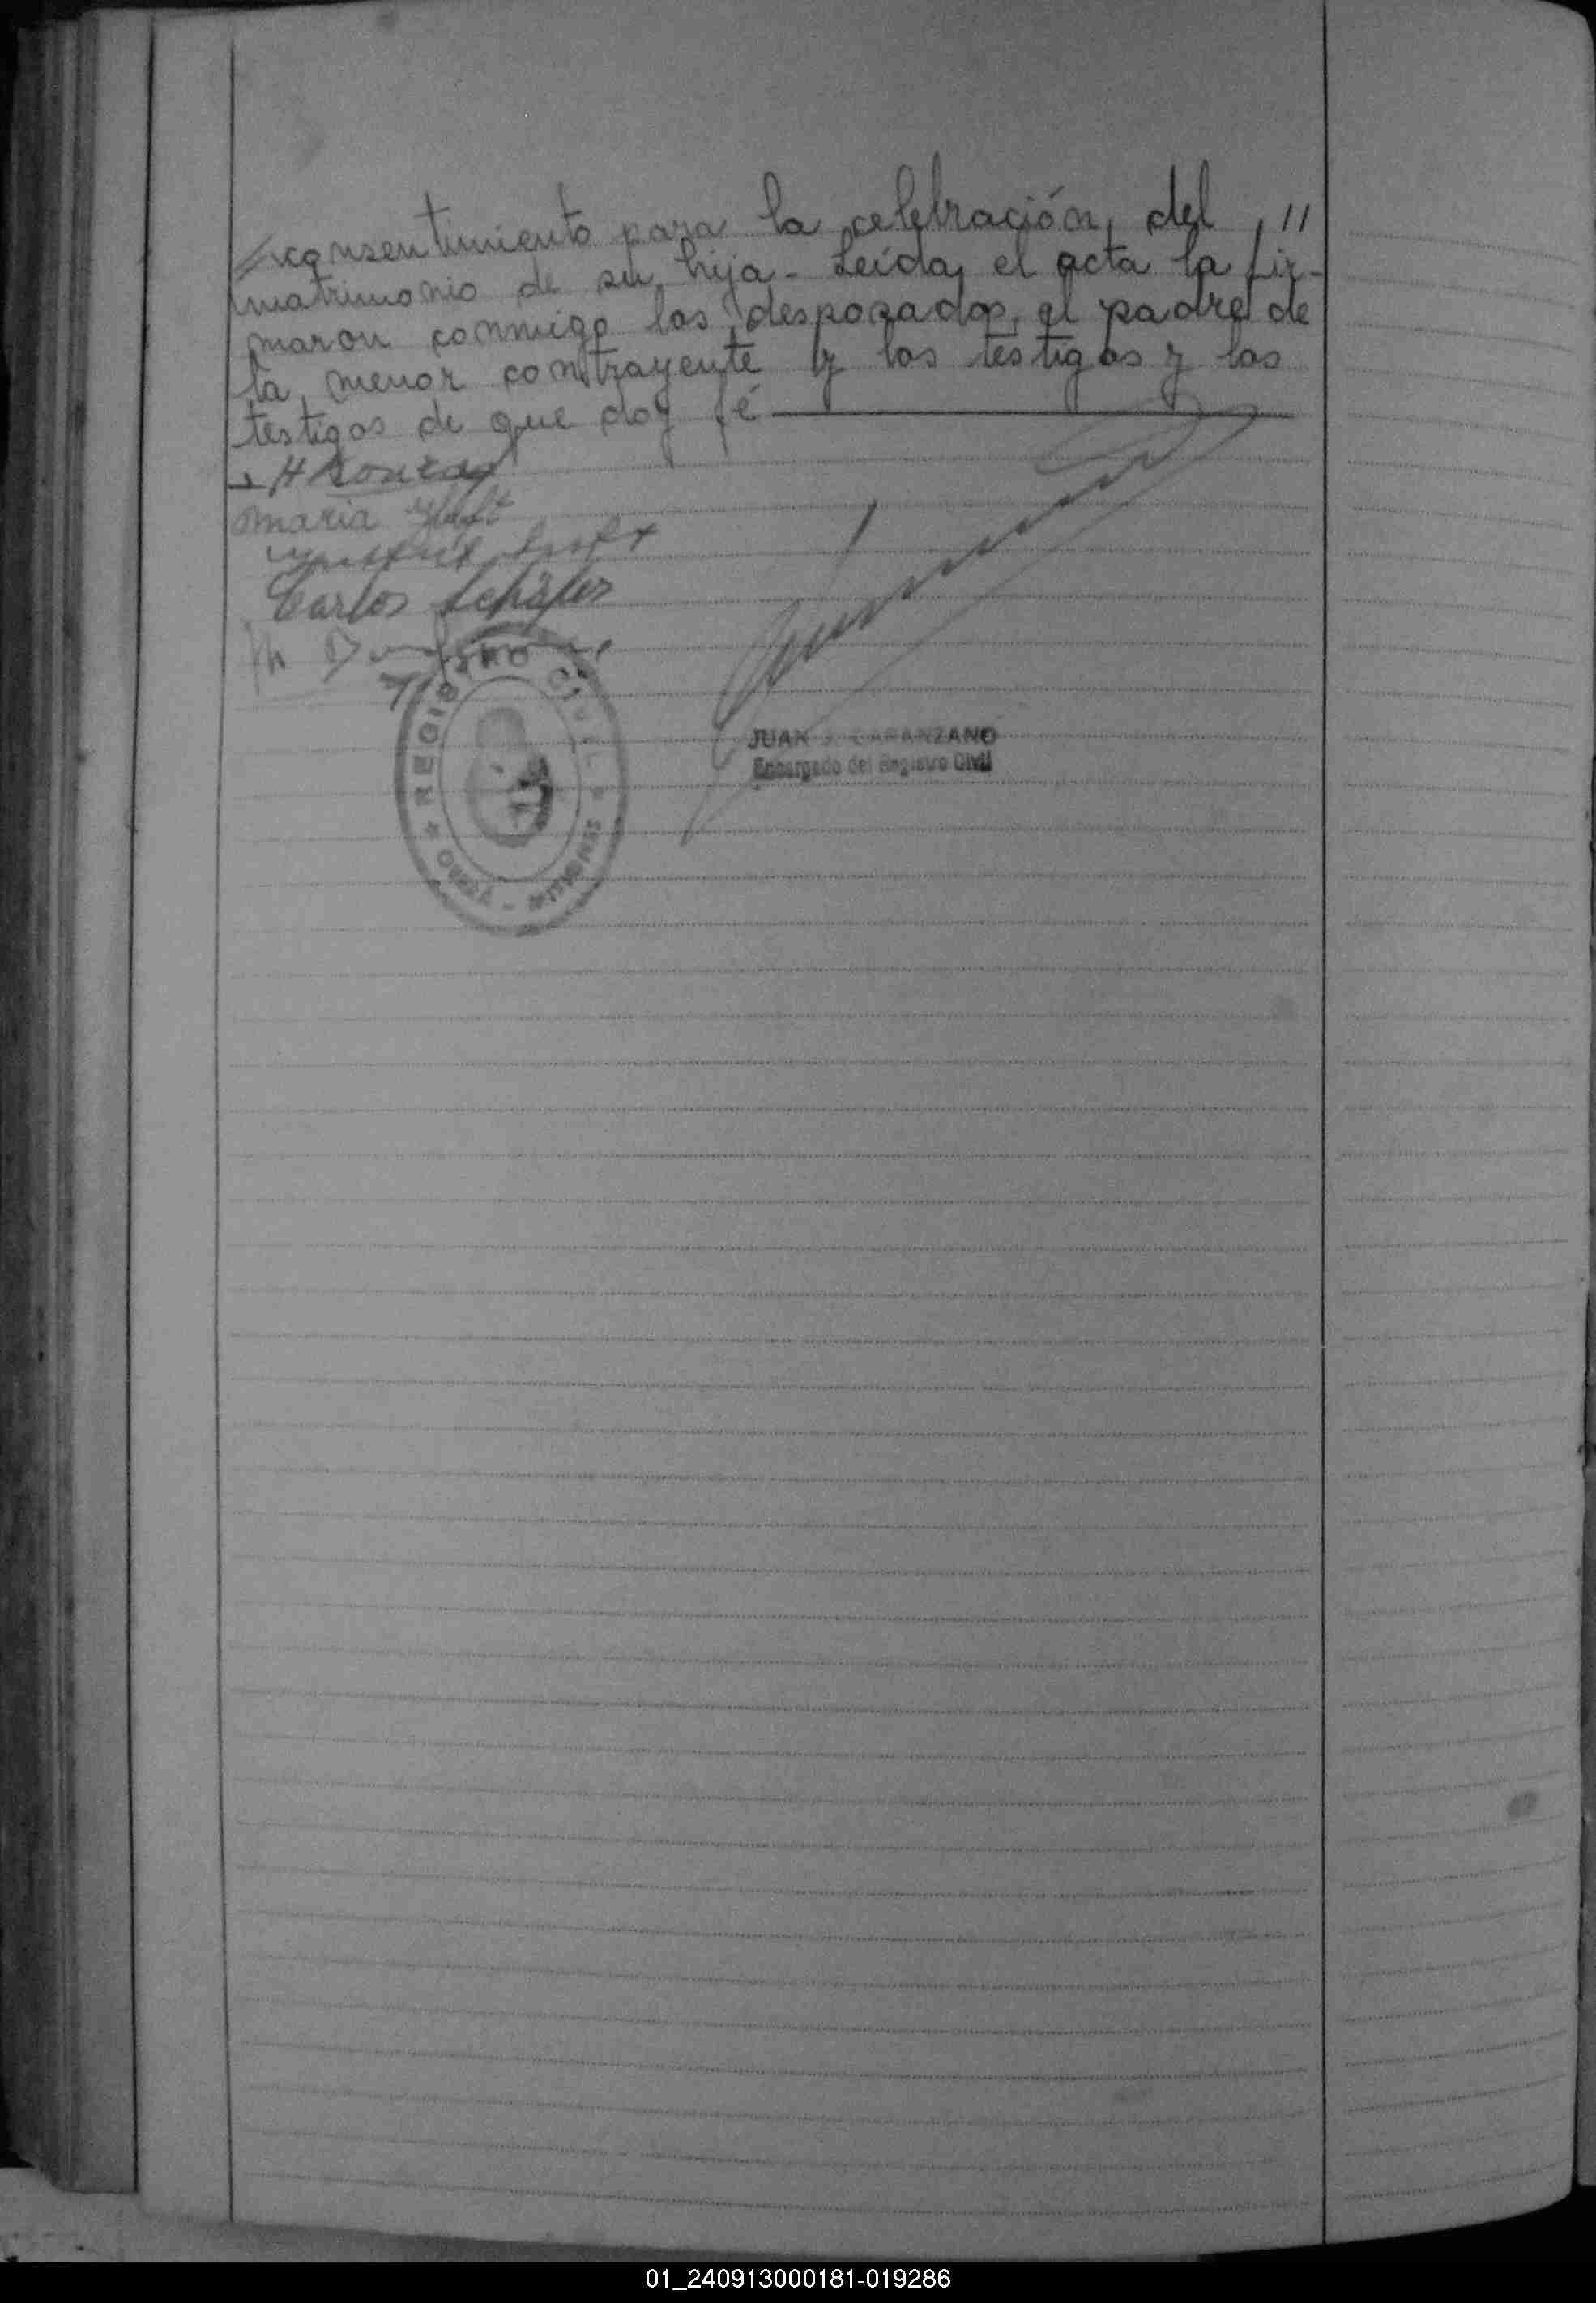 consentimiento para la celebración del //
matrimonio de su hija - Leída el acta la fir-
maron conmigo los desposados, el padre de
la menor contrayente y los testigos y los
testigos de que doy fé
Maria
Carlos Schäfer
REGISTRO CIVIL
MISIONES
JUAN J. CARANZANO
Encargado del Registro Civil
01_240913000181-019286